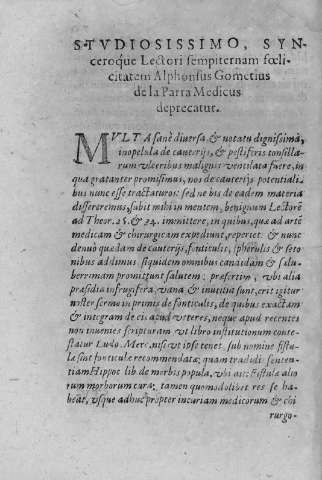 STVDIOSISSIMO, SYN-
ceroq́ue Lectori sempiternam fœli-
citatem Alphonsus Gometius
de la Parra Medicus
deprecatur.
MVLTA sanè diuersa & notatu dignissima,
in opella de cauterijs, & pestiferis tonsilla-
rum vlceribus malignis ventilata fuere, in
qua gratanter promisimus, nos de cauterijs potentiali
bus nunc esse tractaturos: sed ne bis de eadem materia
differeremus, subit mihi in mentem, benignum Lectorē
ad Theor. 25. & 34. immittere, in quibus, quæ ad artē
medicam & chirurgicam expediunt, reperiet. & nunc
denuò quædam de cauterijs, fonticulis, spherulis & seto
nibus addimus. siquidem omnibus candidam & salu-
berrimam promittunt salutem: præsertim, vbi alia
præsidia infrugifera, vana & inutilia sunt, erit igitur
noster sermo in primis de fonticulis, de quibus exactam
& integram de eis apud veteres, neque apud recentes
non inuenies scripturam. vt libro institutionum conte-
statur Ludo. Merc. nisi vt ipse tenet. sub nomine fistu-
læ sint fonticulæ recommendatæ, quam tradidi senten-
tiam Hippoc. lib de morbis popula, vbi ait: Fistulæ alio
rum morborum cura, tamen quomodolibet res se ha-
beat, vsque adhuc propter incuriam medicorum & chi
rurgo-